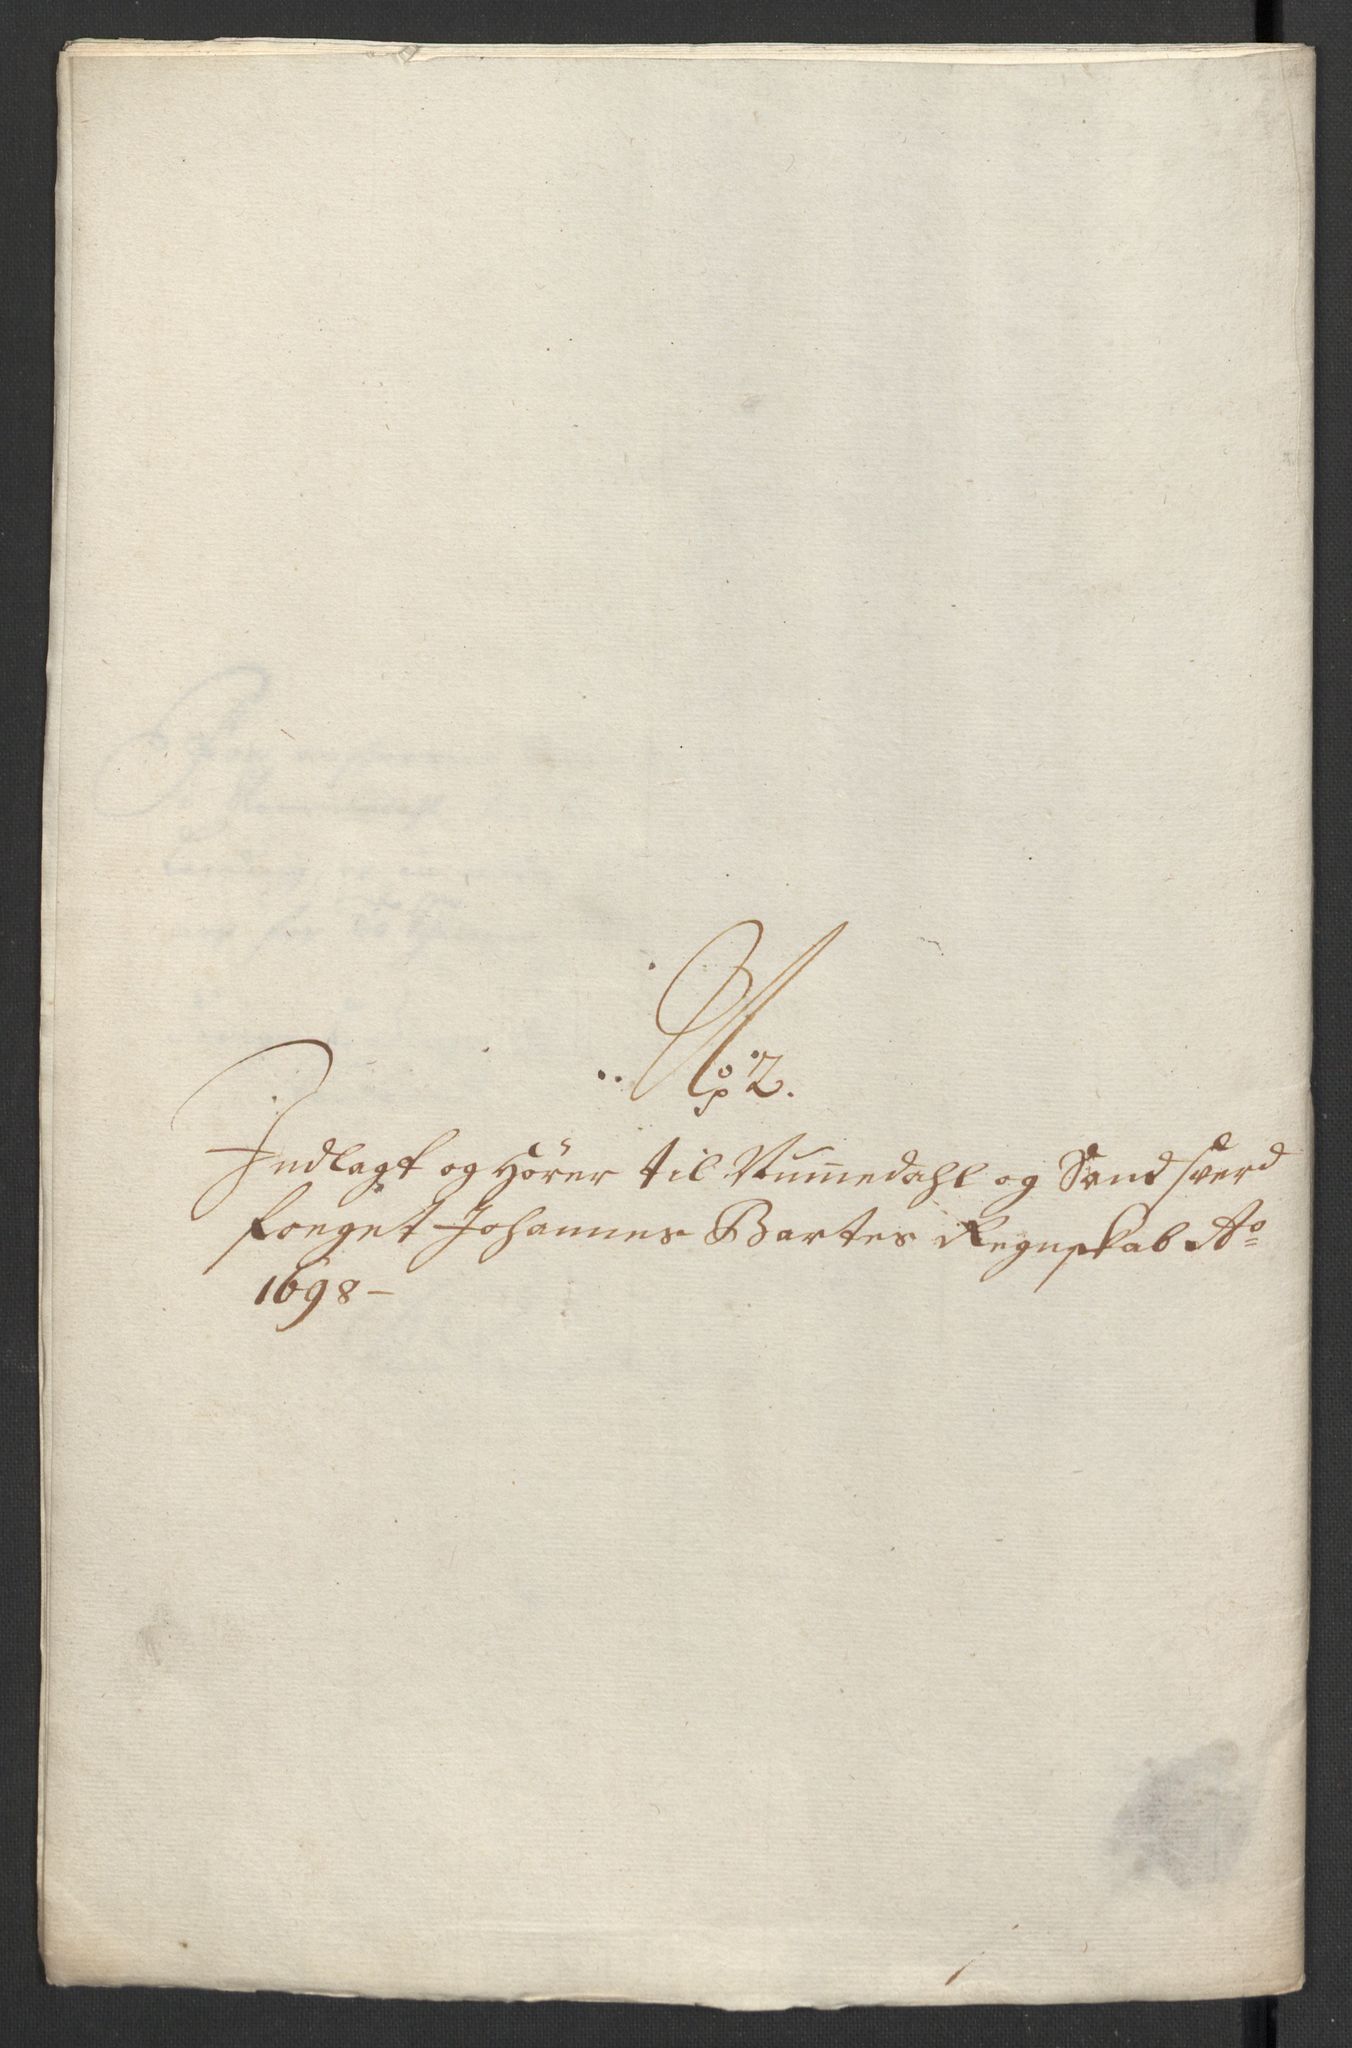 No 2.
Indlagt og Hører til Nummedahl og Sandsverd
foeget Johannes Bartes Regnskab Ao
1698 –